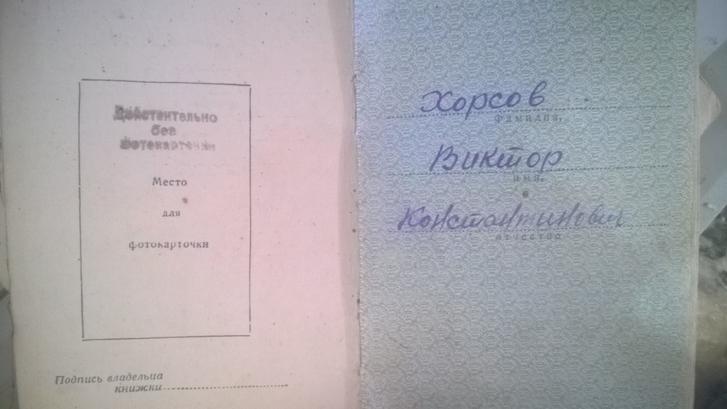 Действительно
без
фотокарточки
Место
для
фотокарточки
Подпись владельца
книжки
Хорсов
фамилия,
Виктор
имя,
Константинович
отчество